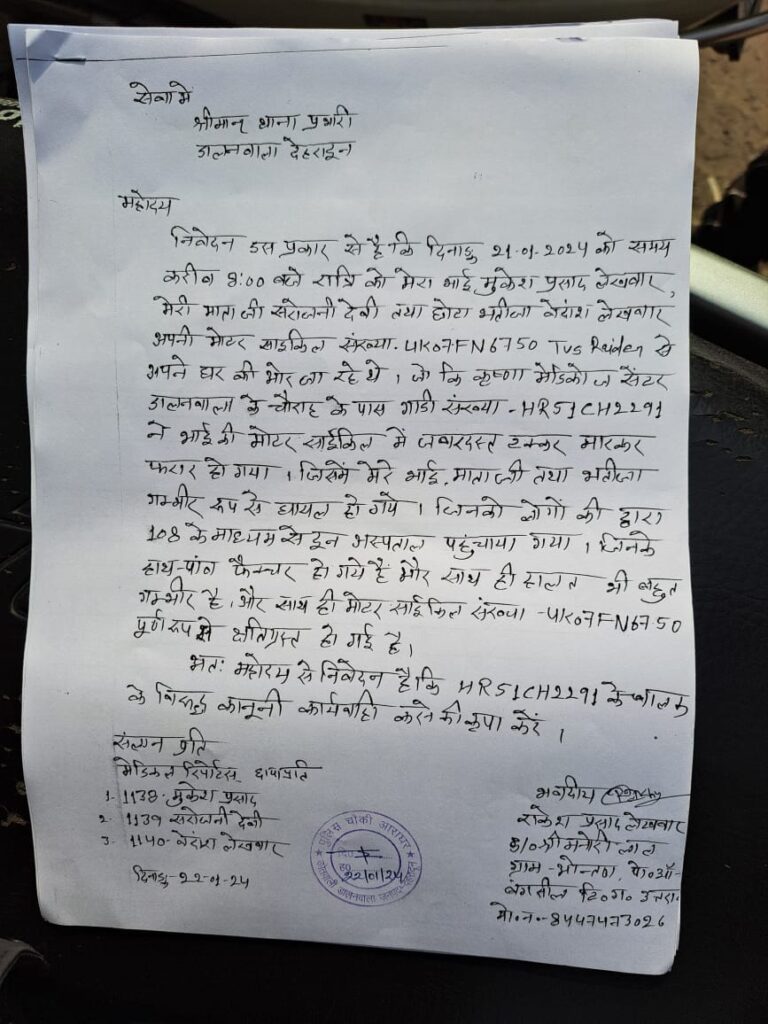 सेवा मे
श्रीमान् थाना प्रभारी
डालनवाला देहरादून
महोदय
निवेदन इस प्रकार से है कि दिनाङ्क 21.01.2024 को समय
करीब 8:00 बजे रात्रि को मेरा भाई मुकेश प्रसाद लेखवार,
मेरी माता जी सरोजनी देवी तथा छोटा भतीजा वेदांश लेखवार
अपनी मोटर साइकिल संख्या. UK07FN6750 TVS Raider से
अपने घर की ओर जा रहे थे। जो कि कृष्णा मेडिकोज सेंटर
डालनवाला के चौराहे के पास गाडी संख्या - HR51CH2291
ने भाई की मोटर साईकिल में जबरदस्त टक्कर मारकर
फरार हो गया। जिसमें मेरे भाई, माता जी तथा भतीजा
गम्भीर रूप से घायल हो गये। जिनको लोगों की द्वारा
108 के माध्यम से दून अस्पताल पहुंचाया गया। जिनके
हाथ-पांव फैक्चर हो गये हैं और साथ ही हालत भी बहुत
गम्भीर है, और साथ ही मोटर साईकिल संख्या -UK07FN6750
पूर्ण रूप से क्षतिग्रस्त हो गई है।
अतः महोदय से निवेदन है कि HR51CH2291 के चालक
के विरूद्ध कानूनी कार्यवाही करने की कृपा करें।
संलग्न प्रति
मेडिकल रिपोर्टस् छायाप्रति
1. 1138. मुकेश प्रसाद
2. 1139 सरोजनी देवी
3. 1140- वेदांश लेखवार
दिनाङ्क-22-01-24
पुलिस चौकी आराघर
22/01/24
कोतवाली डालनवाला जनपद-देहरादून
भवदीय
राकेश प्रसाद लेखवार
S/o श्री मनोरी लाल
ग्राम - पो०ऑ०-
टि०ग० उत्तरा.
मो.न.-8447473026